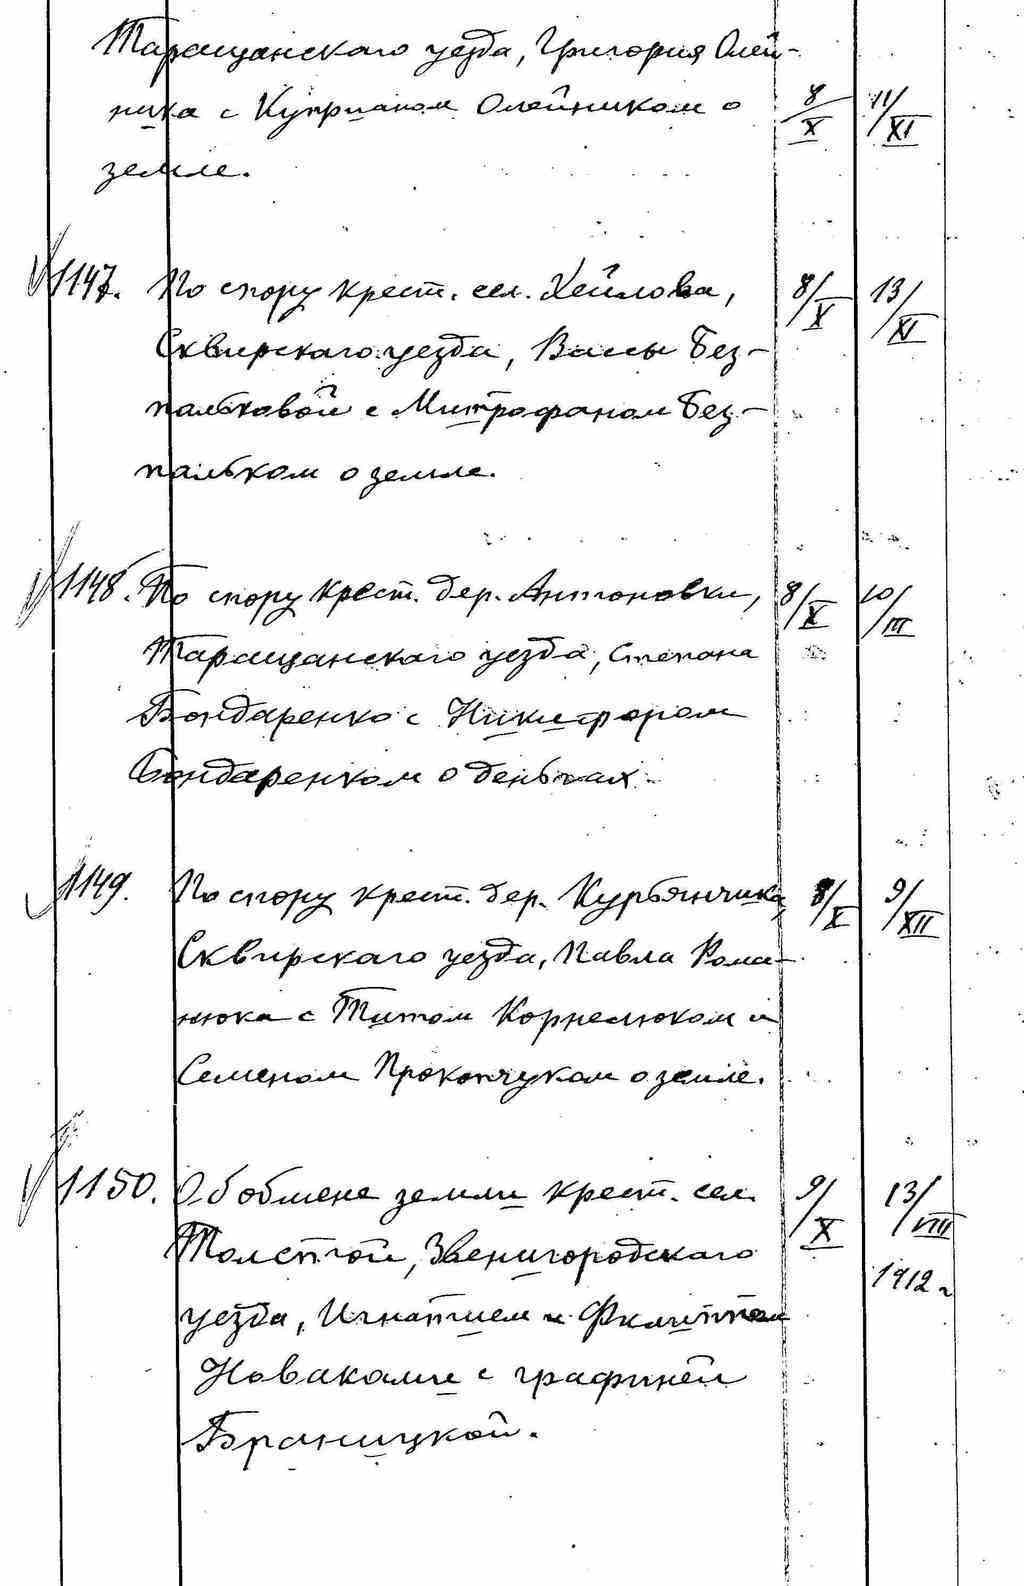 Таращанскаго уезда, Григория Олей-
ника с Куприаном Олейником о 8/X 11/XI
земле.
1147. По спору крест. сел. Хейлова, 8/X 13/XI
Сквирскаго уезда, Вассы Без-
пальковой с Митрофаном Без-
пальком о земле.
1148. По спору крест. дер. Антоновки, 8/X 10/III
Таращанскаго уезда, Степана
Бондаренко с Никифором
Бондаренком о деньгах.
1149. По спору крест. дер. Курбянчика, 8/X 9/XII
Сквирскаго уезда, Павла Рома-
нюка с Титом Корнелюком и
Семеном Прокопчуком о земле.
1150. Об обмене земли крест. сел. 9/X 13/VIII
Толстой, Звенигородскаго 1912 г
уезда, Игнатием и Филиппом
Новаками с графиней
Браницкой.